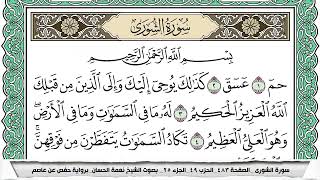 سورة الشورى
بِسْمِ اللَّهِ الرَّحْمَٰنِ الرَّحِيمِ
حمٓ ١ عٓسٓقٓ ٢ كَذَٰلِكَ يُوحِىٓ إِلَيْكَ وَإِلَى ٱلَّذِينَ مِن قَبْلِكَ
ٱللَّهُ ٱلْعَزِيزُ ٱلْحَكِيمُ ٣ لَهُۥ مَا فِى ٱلسَّمَٰوَٰتِ وَمَا فِى ٱلْأَرْضِ
وَهُوَ ٱلْعَلِىُّ ٱلْعَظِيمُ ٤ تَكَادُ ٱلسَّمَٰوَٰتُ يَتَفَطَّرْنَ مِن فَوْقِهِنَّ
سورة الشورى الصفحة ٤٨٣ الحزب ٤٩ الجزء ٢٥ بصوت الشيخ نعمة الحسان برواية حفص عن عاصم